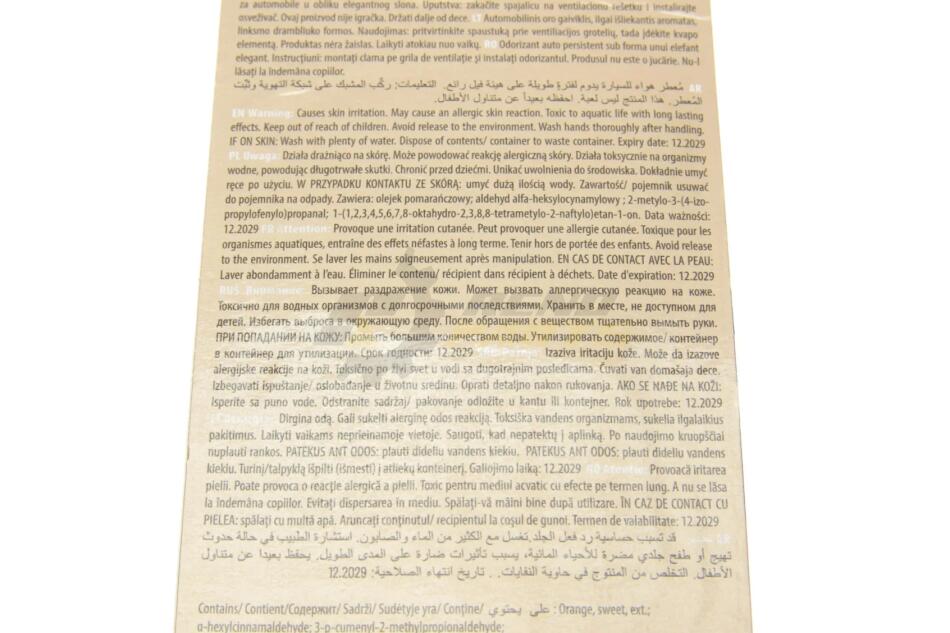 za automobile u obliku elegantnog slona. Uputstva: zakačite spajalicu na ventilacionu rešetku i instalirajte
osveživač. Ovaj proizvod nije igračka. Držati dalje od dece. LT Automobilinis oro gaiviklis, ilgai išliekantis aromatas,
linksmo drambliuko formos. Naudojimas: pritvirtinkite spaustuką prie ventiliacijos grotelių, tada įdėkite kvapo
elementą. Produktas nėra žaislas. Laikyti atokiau nuo vaikų. RO Odorizant auto persistent sub forma unui elefant
elegant. Instrucțiuni: montați clama pe grila de ventilație și instalați odorizantul. Produsul nu este o jucărie. Nu-l
lăsați la îndemâna copiilor.
AR مُعطر هواء للسيارة يدوم لفترةٍ طويلة على هيئة فيل رائع. التعليمات: ركِّب المشبك على شبكة التهوية وثبِّت
المُعطر. هذا المنتج ليس لعبة. احفظه بعيداً عن متناول الأطفال.
EN Warning: Causes skin irritation. May cause an allergic skin reaction. Toxic to aquatic life with long lasting
effects. Keep out of reach of children. Avoid release to the environment. Wash hands thoroughly after handling.
IF ON SKIN: Wash with plenty of water. Dispose of contents/ container to waste container. Expiry date: 12.2029
PL Uwaga: Działa drażniąco na skórę. Może powodować reakcję alergiczną skóry. Działa toksycznie na organizmy
wodne, powodując długotrwałe skutki. Chronić przed dziećmi. Unikać uwolnienia do środowiska. Dokładnie umyć
ręce po użyciu. W PRZYPADKU KONTAKTU ZE SKÓRĄ: umyć dużą ilością wody. Zawartość/ pojemnik usuwać
do pojemnika na odpady. Zawiera: olejek pomarańczowy; aldehyd alfa-heksylocynamylowy ; 2-metylo-3-(4-izo-
propylofenylo)propanal; 1-(1,2,3,4,5,6,7,8-oktahydro-2,3,8,8-tetrametylo-2-naftylo)etan-1-on. Data ważności:
12.2029 FR Attention: Provoque une irritation cutanée. Peut provoquer une allergie cutanée. Toxique pour les
organismes aquatiques, entraîne des effets néfastes à long terme. Tenir hors de portée des enfants. Avoid release
to the environment. Se laver les mains soigneusement après manipulation. EN CAS DE CONTACT AVEC LA PEAU:
Laver abondamment à l'eau. Éliminer le contenu/ récipient dans récipient à déchets. Date d'expiration: 12.2029
RUS Внимание: Вызывает раздражение кожи. Может вызвать аллергическую реакцию на коже.
Токсично для водных организмов с долгосрочными последствиями. Хранить в месте, не доступном для
детей. Избегать выброса в окружающую среду. После обращения с веществом тщательно вымыть руки.
ПРИ ПОПАДАНИИ НА КОЖУ: Промыть большим количеством воды. Утилизировать содержимое/ контейнер
в контейнер для утилизации. Срок годности: 12.2029 SRB Pažnja: Izaziva iritaciju kože. Može da izazove
alergijske reakcije na koži. Toksično po živi svet u vodi sa dugotrajnim posledicama. Čuvati van domašaja dece.
Izbegavati ispuštanje/ oslobađanje u životnu sredinu. Oprati detaljno nakon rukovanja. AKO SE NAĐE NA KOŽI:
Isperite sa puno vode. Odstranite sadržaj/ pakovanje odložite u kantu ili kontejner. Rok upotrebe: 12.2029
Dirgina odą. Gali sukelti alerginę odos reakciją. Toksiška vandens organizmams, sukelia ilgalaikius
pakitimus. Laikyti vaikams neprieinamoje vietoje. Saugoti, kad nepatektų į aplinką. Po naudojimo kruopščiai
nuplauti rankos. PATEKUS ANT ODOS: plauti dideliu vandens kiekiu. PATEKUS ANT ODOS: plauti dideliu vandens
kiekiu. Turinį/talpyklą išpilti (išmesti) į atliekų konteinerį. Galiojimo laiką: 12.2029 RO Atenție: Provoacă iritarea
pielii. Poate provoca o reacție alergică a pielii. Toxic pentru mediul acvatic cu efecte pe termen lung. A nu se lăsa
la îndemâna copiilor. Evitați dispersarea în mediu. Spălați-vă mâini bine după utilizare. ÎN CAZ DE CONTACT CU
PIELEA: spălați cu multă apă. Aruncați conținutul/ recipientul la coșul de gunoi. Termen de valabilitate: 12.2029
AR قد تسبب حساسية رد فعل الجلد.تغسل مع الكثير من الماء والصابون. استشارة الطبيب في حالة حدوث
تهيج أو طفح جلدي مضرة للأحياء المائية، يسبب تأثيرات ضارة على المدى الطويل. يحفظ بعيدا عن متناول
الأطفال. التخلص من المنتوج في حاوية النفايات. . تاريخ انتهاء الصلاحية: 12.2029
Contains/ Contient/Содержит/ Sadrži/ Sudėtyje yra/ Conține/ على يحتوي : Orange, sweet, ext.;
α-hexylcinnamaldehyde; 3-p-cumenyl-2-methylpropionaldehyde;